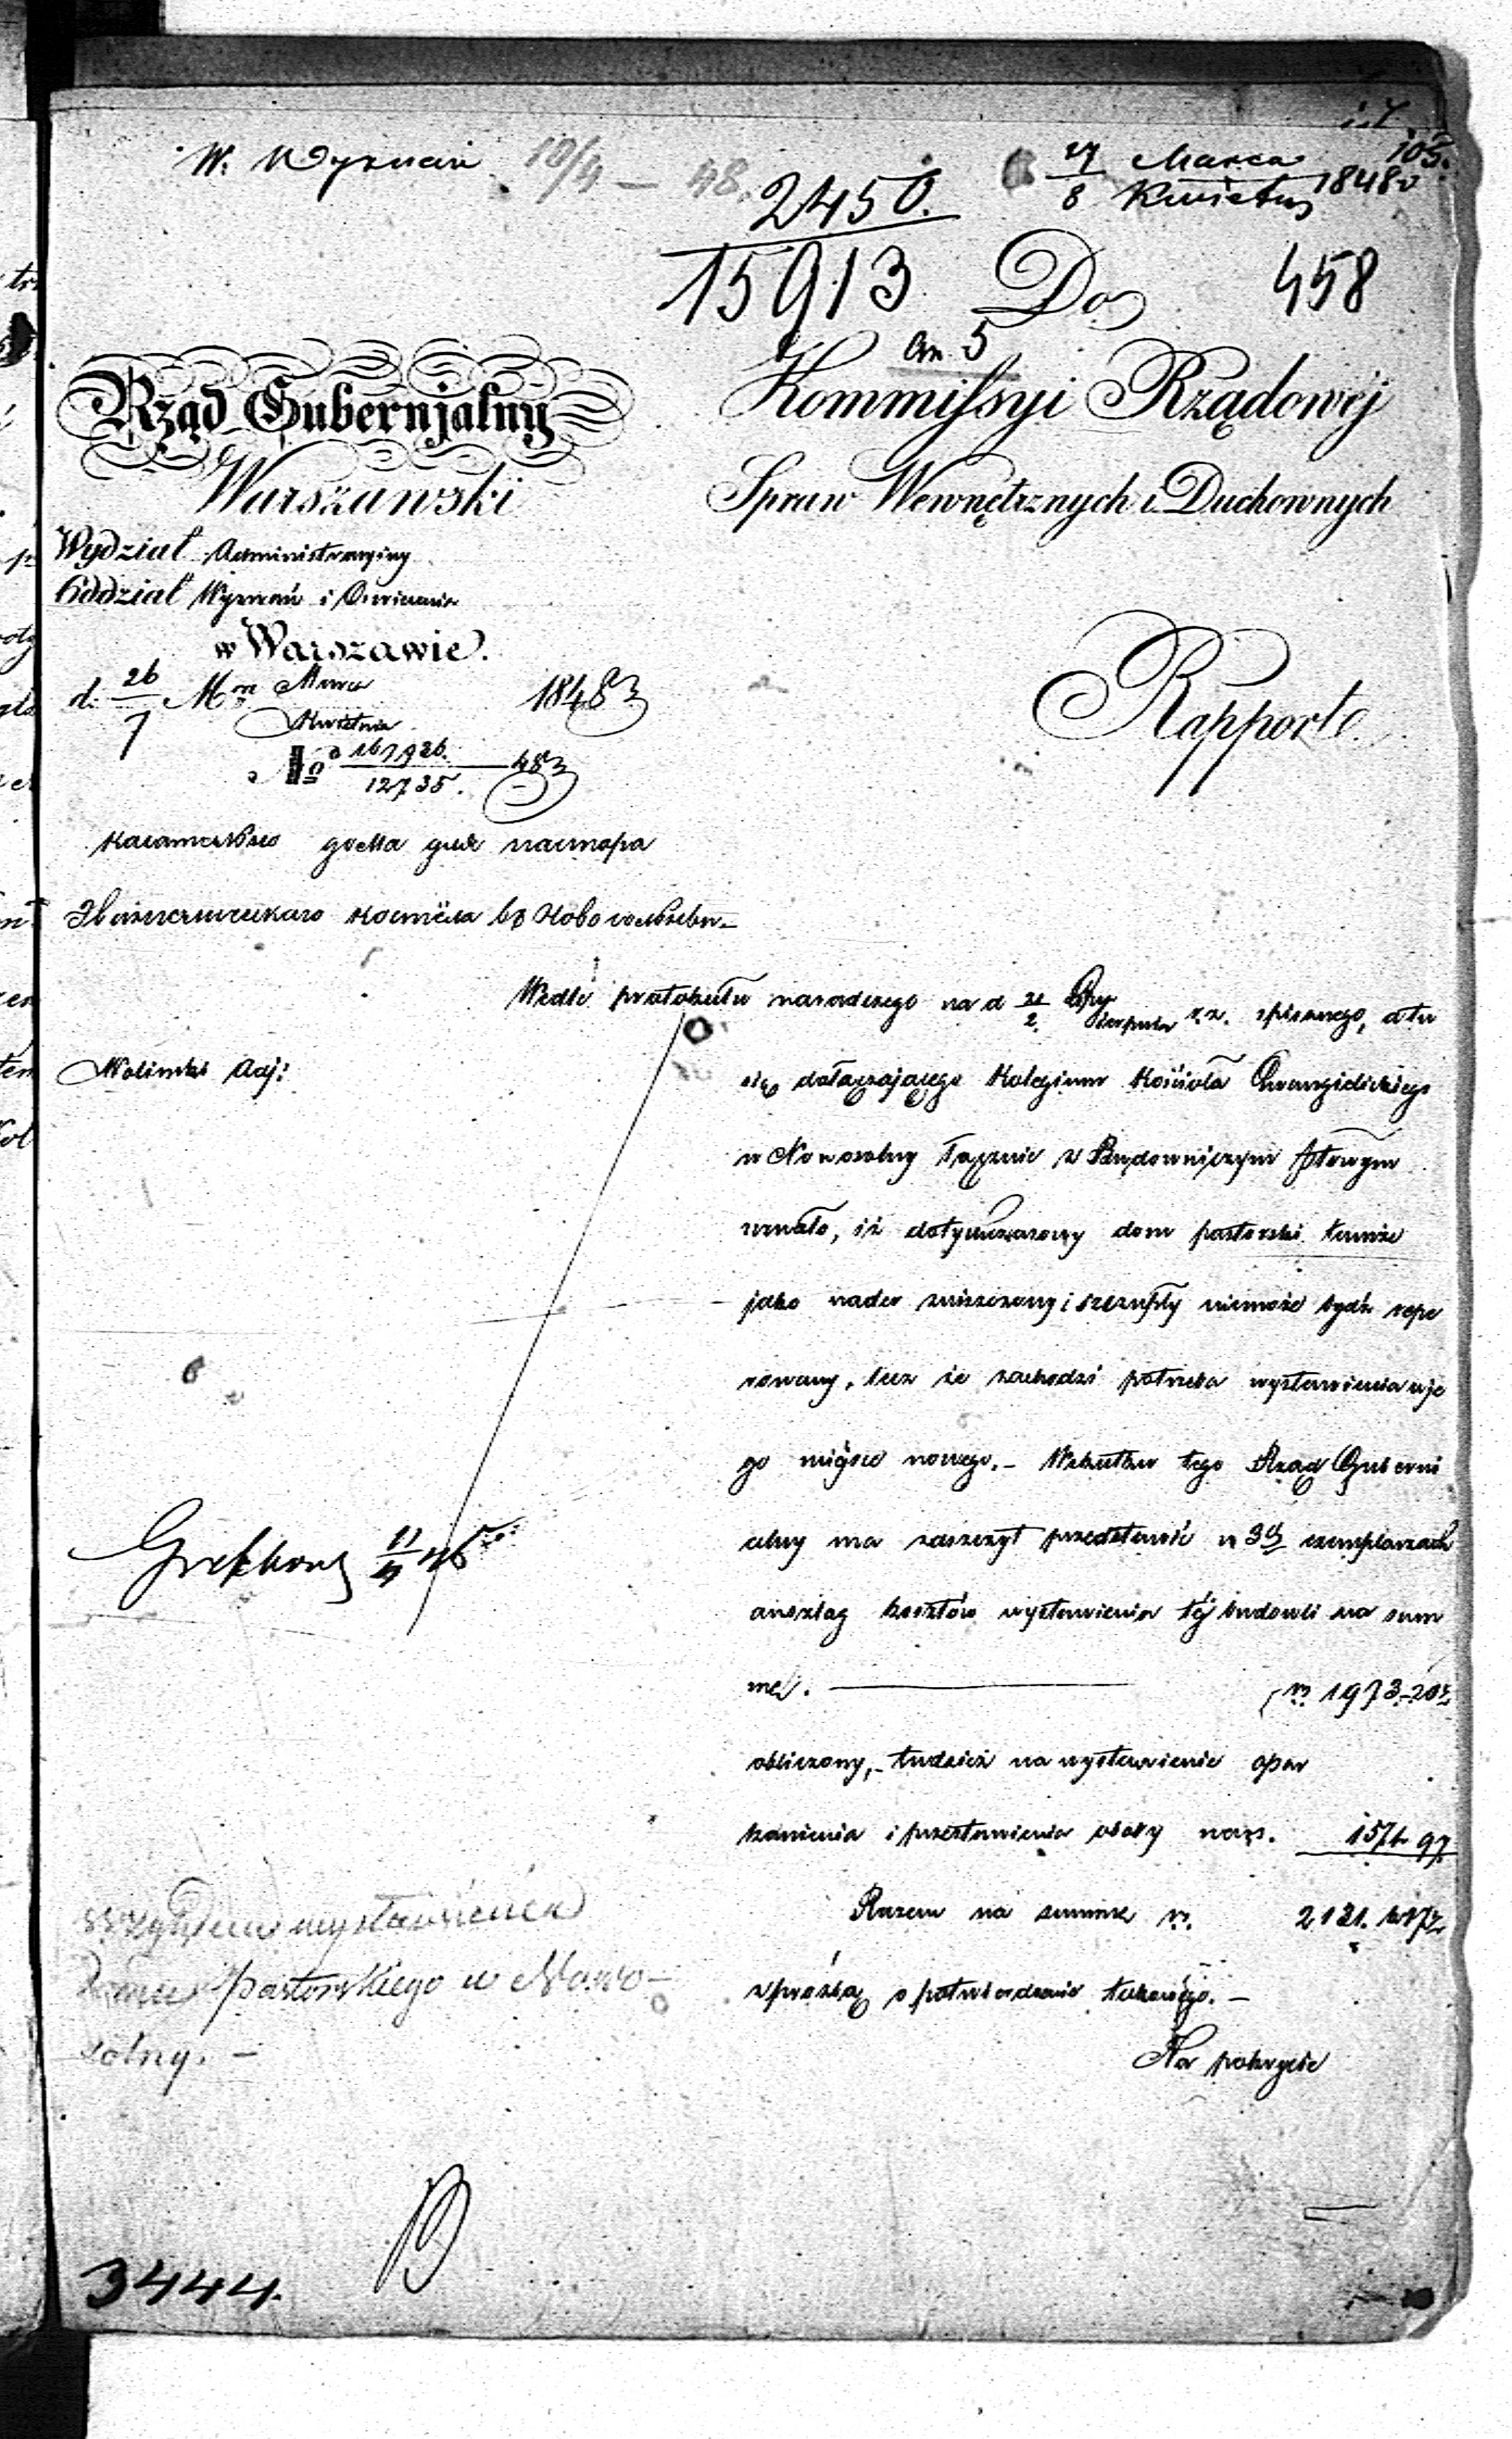 105.
W. Wyznań 10/4 — 48.
27 Marca
8 Kwietnia 1848 r
2450.
15913
Do
458
an. 5
Rząd Gubernjalny
Warszawski
Kommissyi Rządowéj
Spraw Wewnętrznych i Duchownych
Wydział Administracyjny
Oddział Wyznań i Oświecenia
w Warszawie.
d. 26/7 Mca Marca
Kwietnia 1848 r
No 167926/12735. 48
Rapport.
Wedle protokułu naradczego na d 21/2 sierpnia r.z. spisanego, a tu
Woliński Adj:
się dołączającego Kolegium Kościoła Ewangielickiego
w Nowosolny łącznie z Budowniczym
uznało, iż dotychczasowy dom pastorski tamże
jako nader zniszczony i szczupły niemoże bydź repe
rowany, lecz że zachodzi potrzeba wystawienia w je
go miejsce nowego. – Wskutku tego Rząd Guberni
alny ma zaszczyt przedstawić w 3ch exemplarzach
anszlag kosztów wystawienia téj budowli na sum
mę. — 1973
obliczony, – tudzież na wystawienie opar
kanienia i przestawienia obory 157
Razem na summę 2131.
z prośbą o potwierdzenie takowego. –
Na pokrycie
11/4 48
względem wystawienia
domu Pastorskiego w Nowo-
solny. –
3444.